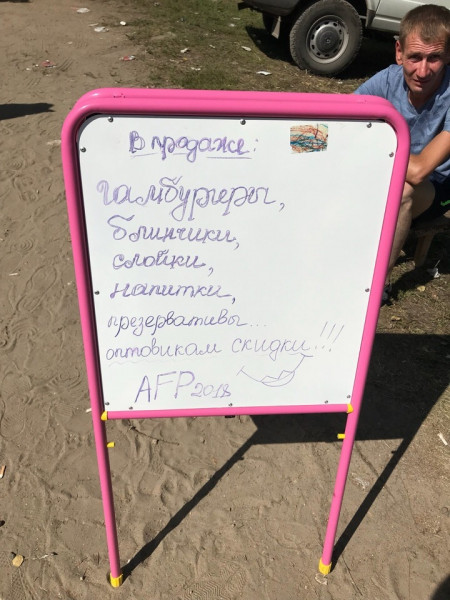 В продаже:
гамбургеры,
блинчики,
слойки,
напитки,
презервативы...
оптовикам скидки!!!
AFP2018